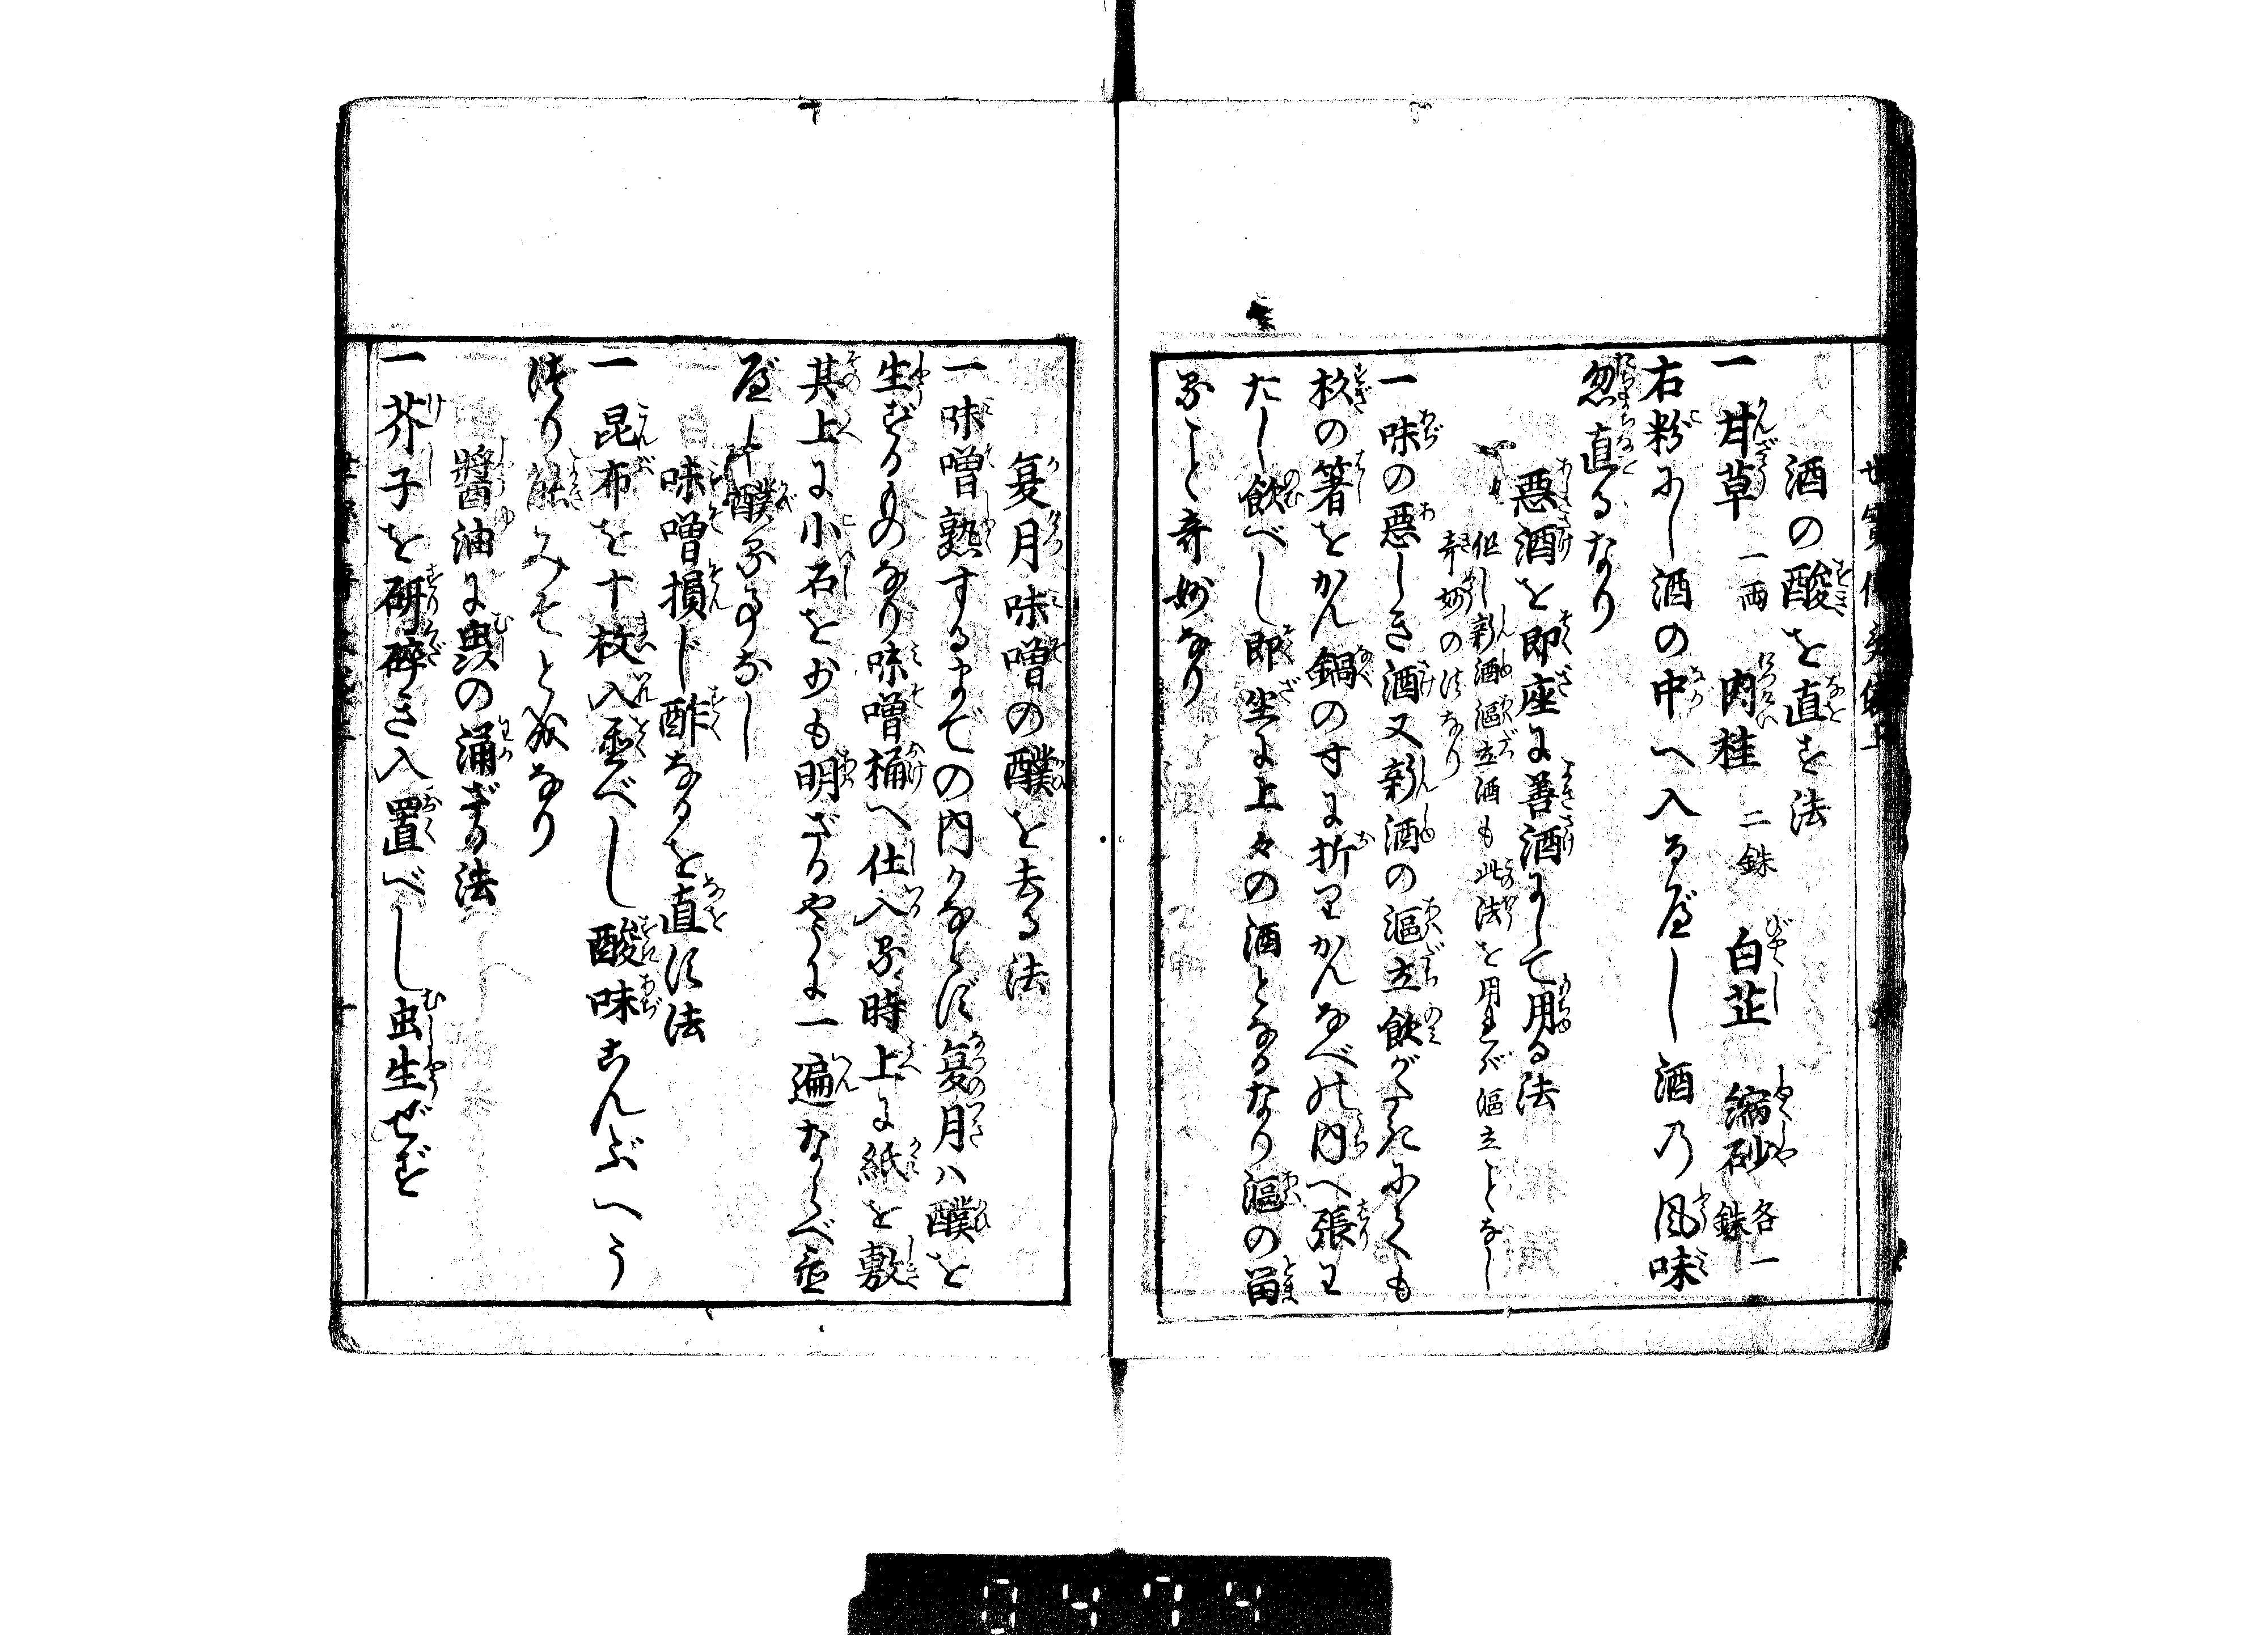 酒の酸を直す法
一 甘草 一両 肉桂 二銖 白芷 縮砂 各一銖
右粉にし酒の中へ入るべし酒の風味
忽直るなり
悪酒を即座に善酒にして用る法
但し新酒漚立酒も此法を用れば漚立ことなし
奇妙の法なり
一 味の悪しき酒又新酒の漚立飲がたきにくも
杉の箸をかん鍋の寸に折てかんなべの内へ張て
たし飲べし即坐に上々の酒となるなり漚の留
ること奇妙なり
夏月味噌の醭を去る法
一味噌熟するまでの内かならず夏月は醭を
生ずるものなり味噌桶へ仕入る時上に紙を敷
其上に小石を少も明ざるやうに一遍ならべ置
べし醭る事なし
味噌損じ酢なるを直す法
一 昆布を十枚入置べし酸味こんぶへう
つり能みそと成なり
醤油に虫の涌ざる法
一芥子を研砕き入置べし虫生ぜず